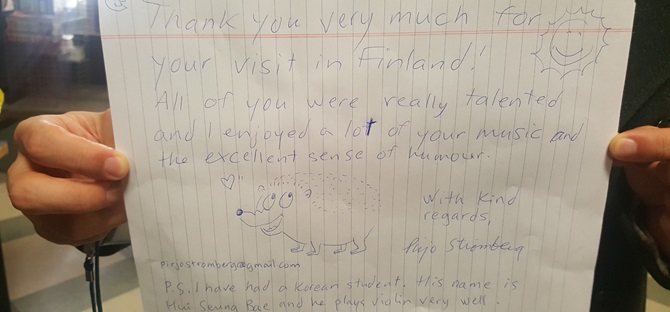 Thank you very much for
your visit in Finland!
All of you were really talented
and I enjoyed a lot of your music and
the excellent sense of humour.
With kind
regards,
Pirjo Strömberg
pirjostromberg@gmail.com
P.S. I have had a Korean student. His name is
Hui Seung Bae and he plays violin very well.